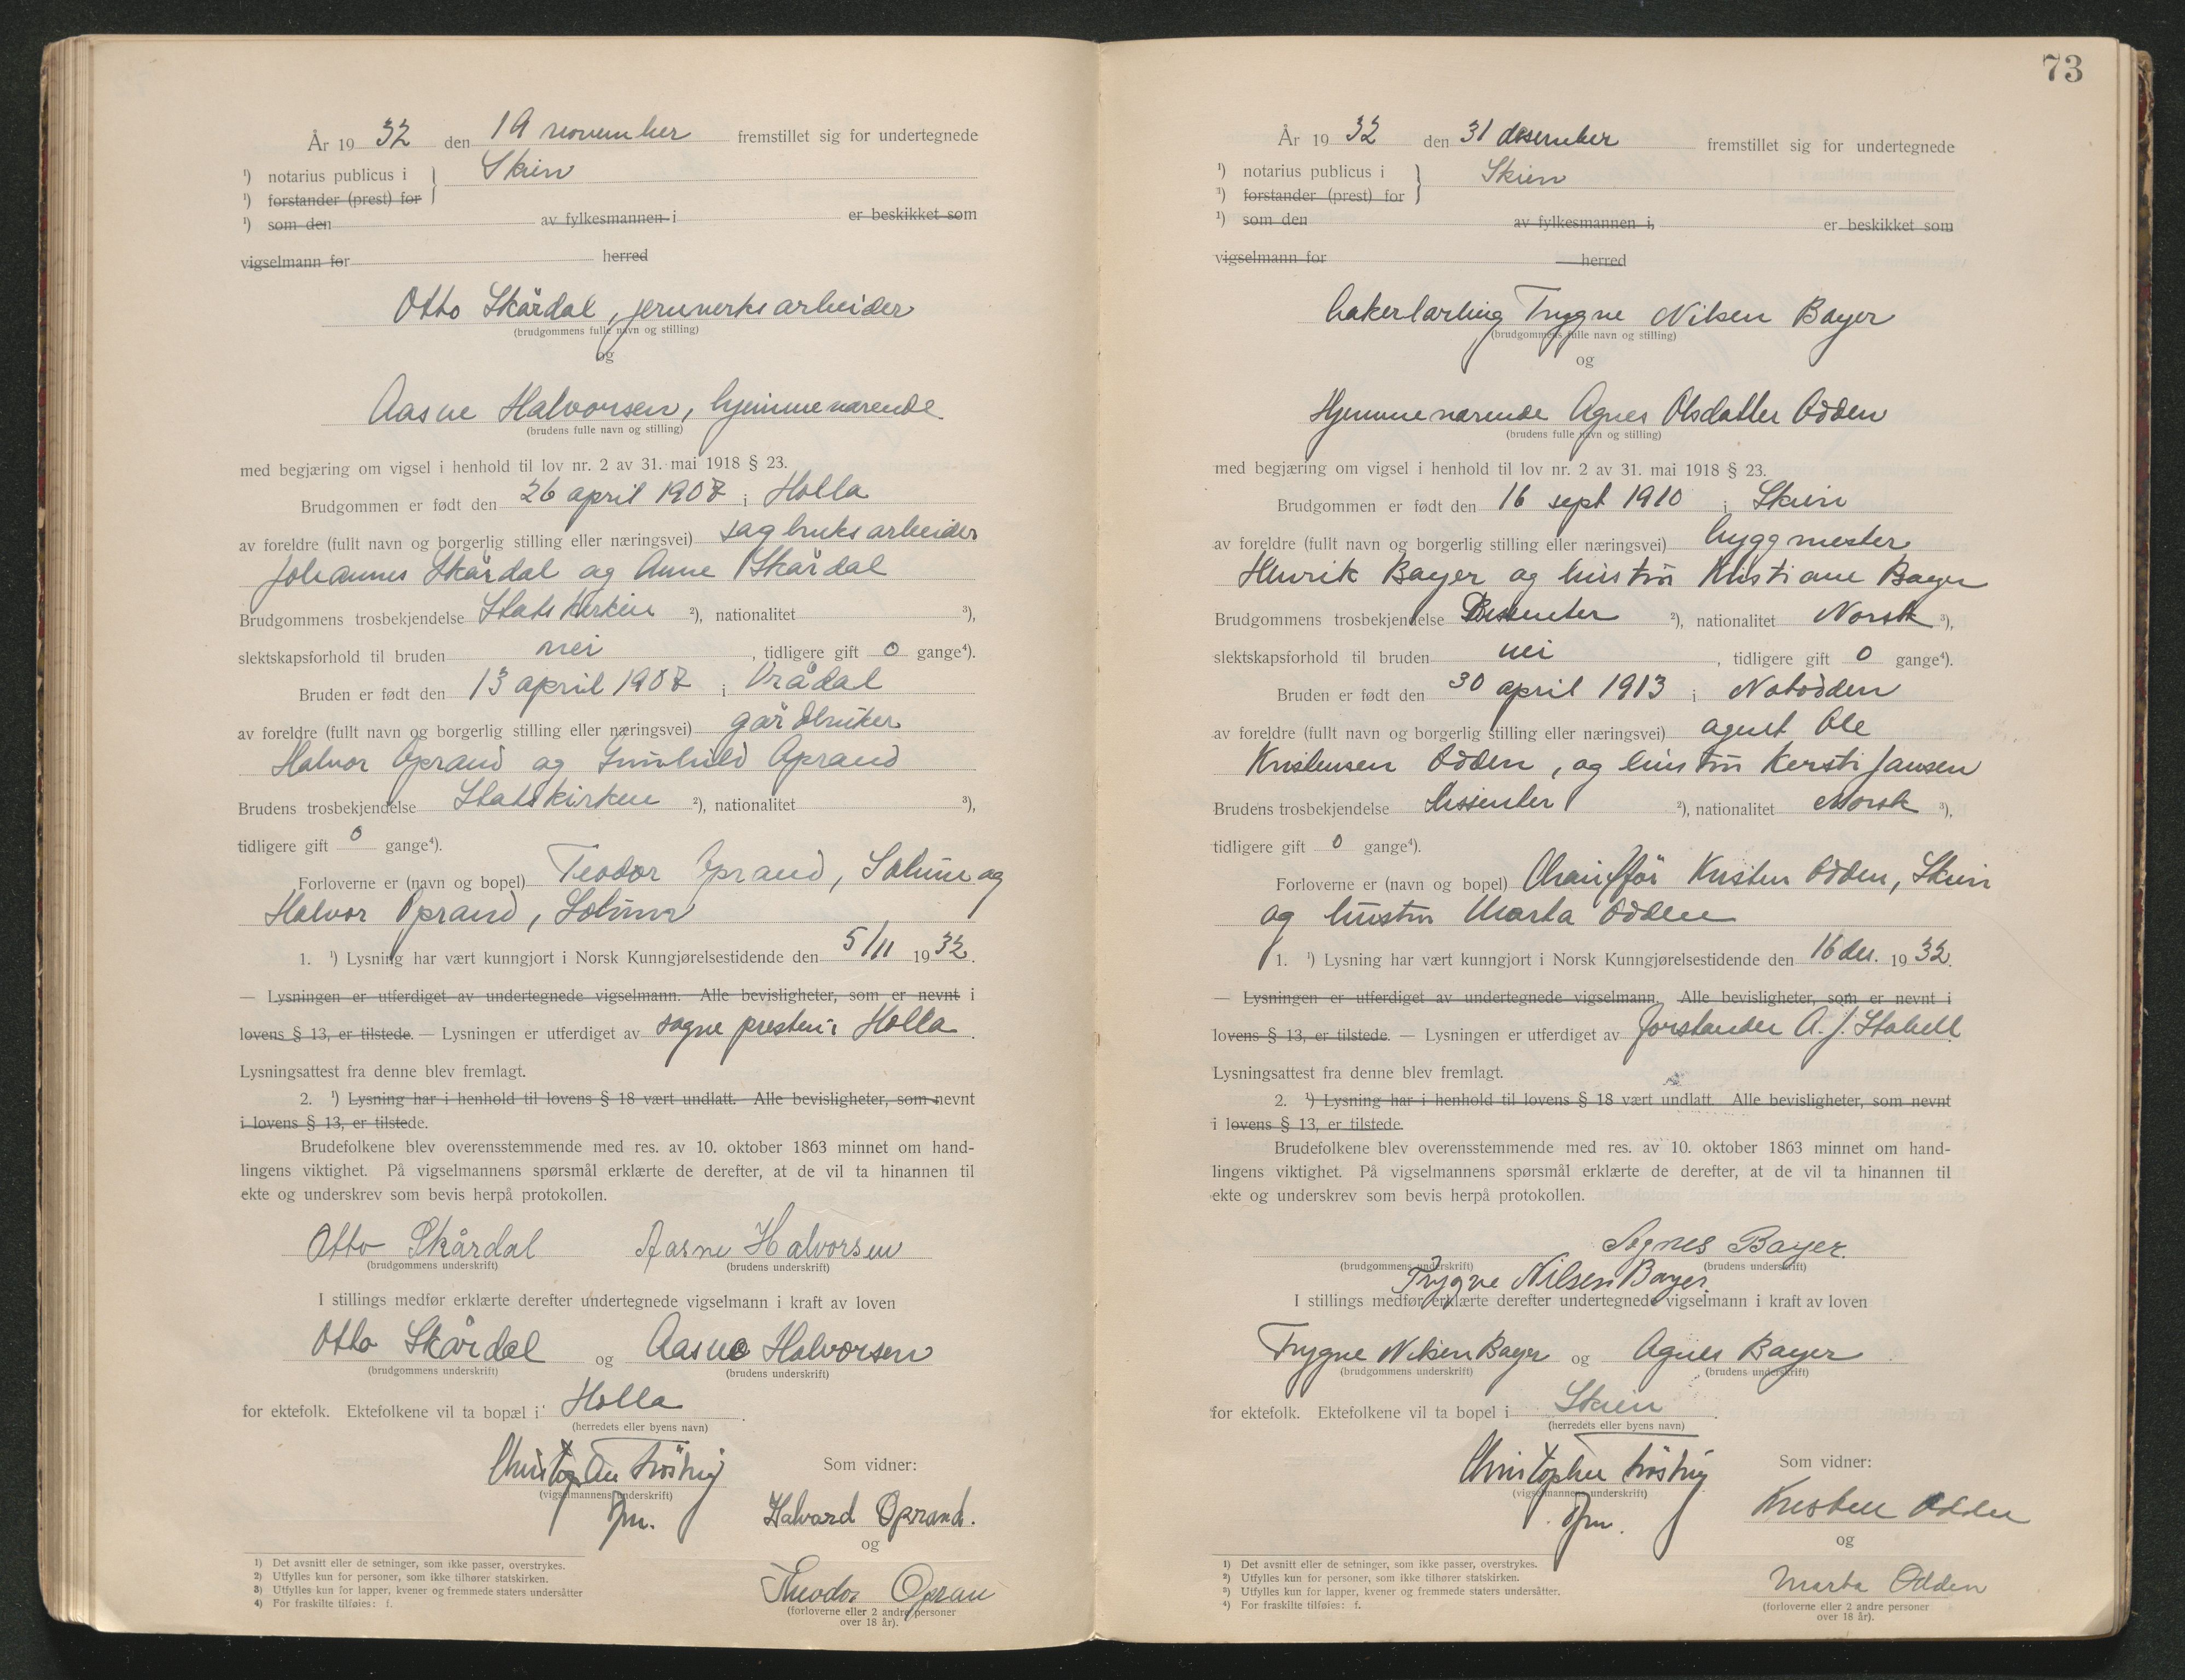 År 19 32 den 19 november fremstillet sig for undertegnede
¹) notarius publicus i } Skien
¹) forstander (prest) for
¹) som den av fylkesmannen i er beskikket som
vigselmann for herred
Otto Skårdal, jernverksarbeider
(brudgommens fulle navn og stilling)
og
Aasne Halvorsen, hjemmeværende.
(brudens fulle navn og stilling)
med begjæring om vigsel i henhold til lov nr. 2 av 31. mai 1918 § 23.
Brudgommen er født den 26 april 1908 i Holla
av foreldre (fullt navn og borgerlig stilling eller næringsvei) sagbruksarbeider
Johannes Skårdal og Anne Skårdal
Brudgommens trosbekjendelse Statskirken ²), nationalitet ³),
slektskapsforhold til bruden nei , tidligere gift 0 gange⁴).
Bruden er født den 13 april 1908 i Vrådal
av foreldre (fullt navn og borgerlig stilling eller næringsvei) gårdbruker
Halvor Oprand og Gunhild Oprand
Brudens trosbekjendelse Statskirken ²), nationalitet ³),
tidligere gift 0 gange⁴).
Forloverne er (navn og bopel) Teodor Oprand, Solum og
Halvor Oprand, Solum
1. ¹) Lysning har vært kunngjort i Norsk Kunngjørelsestidende den 5/11 1932.
— Lysningen er utferdiget av undertegnede vigselmann. Alle bevisligheter, som er nevnt i
lovens § 13, er tilstede. — Lysningen er utferdiget av sognepresten i Holla.
Lysningsattest fra denne blev fremlagt.
2. ¹) Lysning har i henhold til lovens § 18 vært undlatt. Alle bevisligheter, som nevnt
i lovens § 13, er tilstede.
Brudefolkene blev overensstemmende med res. av 10. oktober 1863 minnet om hand-
lingens viktighet. På vigselmannens spørsmål erklærte de derefter, at de vil ta hinannen til
ekte og underskrev som bevis herpå protokollen.
Otto Skårdal Aasne Halvorsen
(brudgommens underskrift) (brudens underskrift)
I stillings medfør erklærte derefter undertegnede vigselmann i kraft av loven
Otto Skårdal og Aasne Halvorsen
(brudgommens underskrift) (brudens underskrift)
for ektefolk. Ektefolkene vil ta bopæl i Holla.
(herredets eller byens navn)
Som vidner:
(vigselmannens underskrift)
Halvard Oprand.
og
Theodor Opran
(forloverne eller 2 andre personer
over 18 år).
1) Det avsnitt eller de setninger, som ikke passer, overstrykes.
2) Utfylles kun for personer, som ikke tilhører statskirken.
3) Utfylles kun for lapper, kvener og fremmede staters undersåtter
4) For fraskilte tilføies: f.
73
År 19 32 den 31 desember fremstillet sig for undertegnede
¹) notarius publicus i } Skien
¹) forstander (prest) for
¹) som den av fylkesmannen i, er beskikket som
vigselmann for herred
bakerlærling Trygve Nilsen Bayer
(brudgommens fulle navn og stilling)
og
Hjemmeværende Agnes Olsdatter Odden
(brudens fulle navn og stilling)
med begjæring om vigsel i henhold til lov nr. 2 av 31. mai 1918 § 23.
Brudgommen er født den 16 sept 1910 i Skien
av foreldre (fullt navn og borgerlig stilling eller næringsvei) byggmester
Henrik Bayer og hustru Kristiane Bayer
Brudgommens trosbekjendelse Dissenter ²), nationalitet Norsk ³),
slektskapsforhold til bruden nei , tidligere gift 0 gange⁴).
Bruden er født den 30 april 1913 i Notodden
av foreldre (fullt navn og borgerlig stilling eller næringsvei) agent Ole
Kristensen Odden, og hustru Kersti Jansen
Brudens trosbekjendelse dissenter ²), nationalitet norsk ³),
tidligere gift 0 gange⁴).
Forloverne er (navn og bopel) Chauffør Kristen Odden, Skien
og hustru Marta Odden
1. ¹) Lysning har vært kunngjort i Norsk Kunngjørelsestidende den 16 des. 1932.
— Lysningen er utferdiget av undertegnede vigselmann. Alle bevisligheter, som er nevnt i
lovens § 13, er tilstede. — Lysningen er utferdiget av forstander A. J. Stabell.
Lysningsattest fra denne blev fremlagt.
2. ¹) Lysning har i henhold til lovens § 18 vært undlatt. Alle bevisligheter, som nevnt
i lovens § 13, er tilstede.
Brudefolkene blev overensstemmende med res. av 10. oktober 1863 minnet om hand-
lingens viktighet. På vigselmannens spørsmål erklærte de derefter, at de vil ta hinannen til
ekte og underskrev som bevis herpå protokollen.
Agnes Bayer.
(brudgommens underskrift) (brudens underskrift)
Trygve Nilsen Bayer.
I stillings medfør erklærte derefter undertegnede vigselmann i kraft av loven
Trygve Nilsen Bayer og Agnes Bayer
(brudgommens underskrift) (brudens underskrift)
for ektefolk. Ektefolkene vil ta bopel i Skien.
(herredets eller byens navn)
Christopher Som vidner:
(vigselmannens underskrift)
Kristen Odden
og
Marta Odden
(forloverne eller 2 andre personer
over 18 år).
1) Det avsnitt eller de setninger, som ikke passer, overstrykes.
2) Utfylles kun for personer, som ikke tilhører statskirken.
3) Utfylles kun for lapper, kvener og fremmede staters undersåtter.
4) For fraskilte tilføies: f.